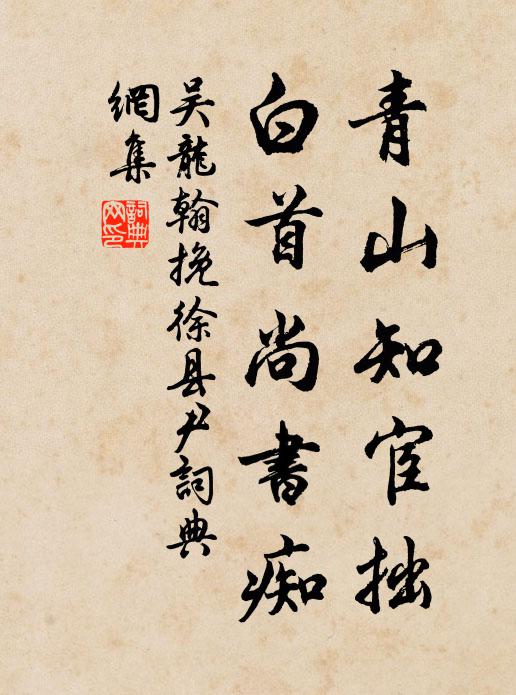 青山知宦拙
白首尚書痴
吴龍翰挽徐县尹詞典
網集
詞典
网印